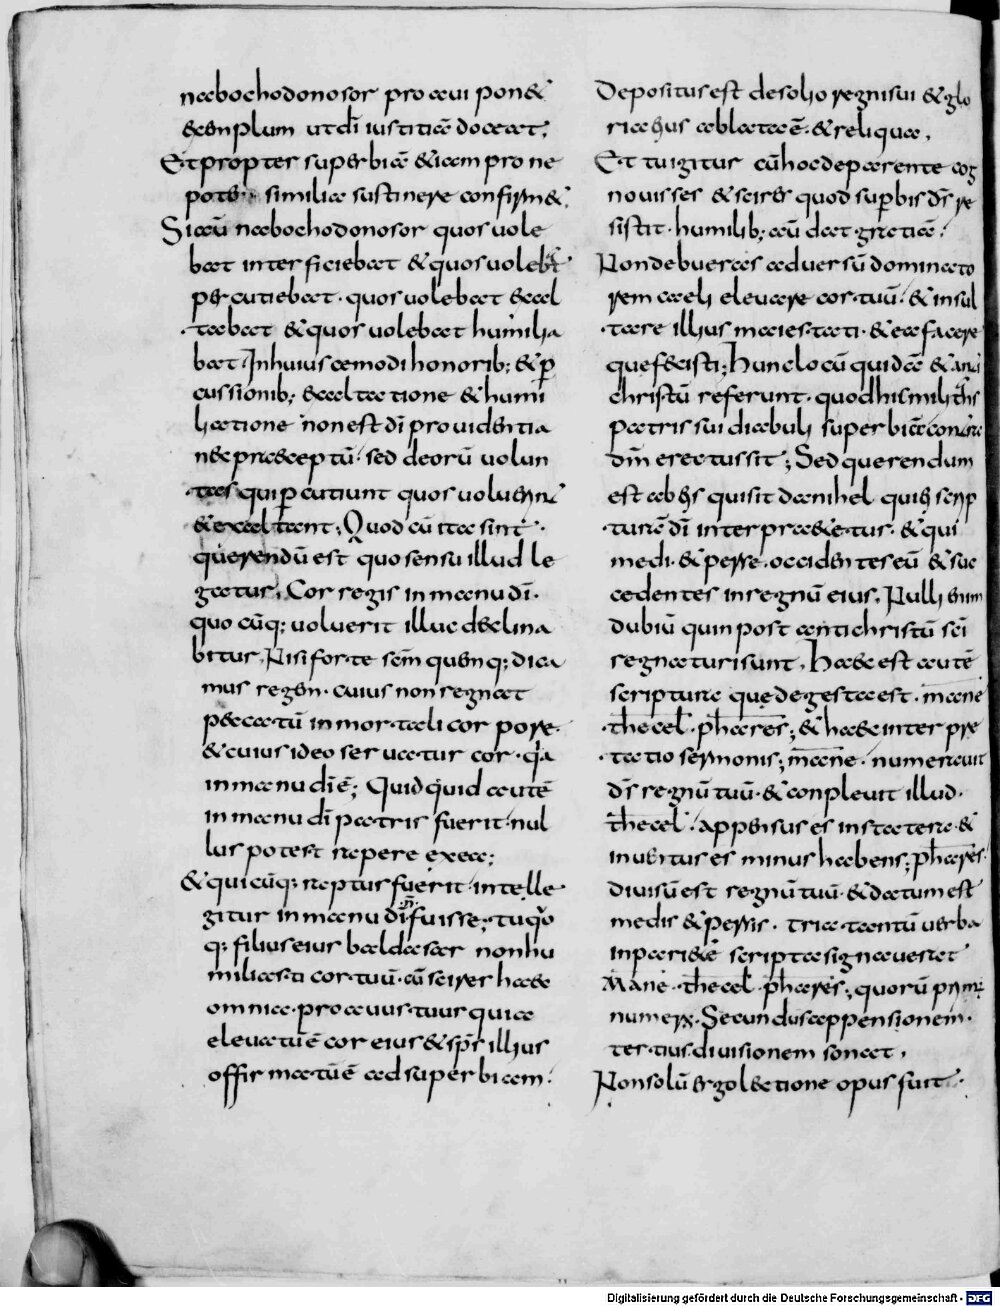 nabochodonosor proaui pon&
&exēplum ut dī iustitia doceat;
Et propter superbiā & iam pro ne
pote similia sustinere confirm&;
Si aū nabochodonosor quos uole
bat interficiebat & quos uoleb&
percutiebat· quos uolebat exal
tabat & quos uolebat humilia
bat· In huiuscemodi honorib; & ꝑ
cussionib; & exaltatione & humi
liatione non est dī prouidentia
nec praeceptū· sed deorū uolun
tas qui ꝑcutiunt quos uoluerint
& exaltant; Quod cū ita sint·
querendū est quo sensu illud le
gatur; Cor regis in manu dī·
quo cūq; uoluerit illuc declina
bitur, Nisi forte scm̄ quenq; dica
mus regem· cuius non regnat
peccatū in mortali corpore·
& cuius ideo seruatur cor· qa
in manu dī ē; Quidquid autē
in manu dī patris fuerit· nul
lus potest rapere ex ea;
& quicūq; raptus fuerit· intelle
gitur in manu dī n̄ fuisse; tu qo
q; filius eius baldasar non hu
miliasti cor tuū· cū scires haec
omnia· proauus tuus quia
eleuatū ē cor eius & sps illius
offirmatū ē ad superbiam·
Depositus est de solio regni sui & glo
ria eius ablata ē· & reliqua,
Et tu igitur cū hoc de parente cog
nouisses & scires quod superbis ds̄ re
sistit· humilib; aū dat gratiā·
Non debueras aduersū dominato
rem caeli eleuare cor tuū· & insul
tare illius maiestati· & ea facere
que fecisti; Hunc locū quidā & anti
christū referunt· quod hic militis
patris sui diabuli superbiā contra
dm̄ erectus sit; Sed querendum
est ab his qui sit danihel qui scrip
turā dī interpraetetur· & qui
medi· & perse· occidentes eū & suc
cedentes in regnū eius, Nulli enim
dubiū quin post antichristū sc̄i
regnaturi sunt, Haec est autē
scriptura que degesta est· mane
thecel· phares; & haec interpre
tatio sermonis; mane· numerauit
ds̄ regnū tuū· & conpleuit illud·
thecel· appensus es in statera· &
inuentus es minus habens; phares·
diuisū est regnū tuū· & datum est
medis & persis· tria tantū uerba
in pariete scripta signauerat
Mane· thecel· phares; quorū primū
numerū· Secundus appensionem·
tertius diuisionem sonat,
Non solū ergo lectione opus fuit·
Digitalisierung gefördert durch die Deutsche Forschungsgemeinschaft - DFG